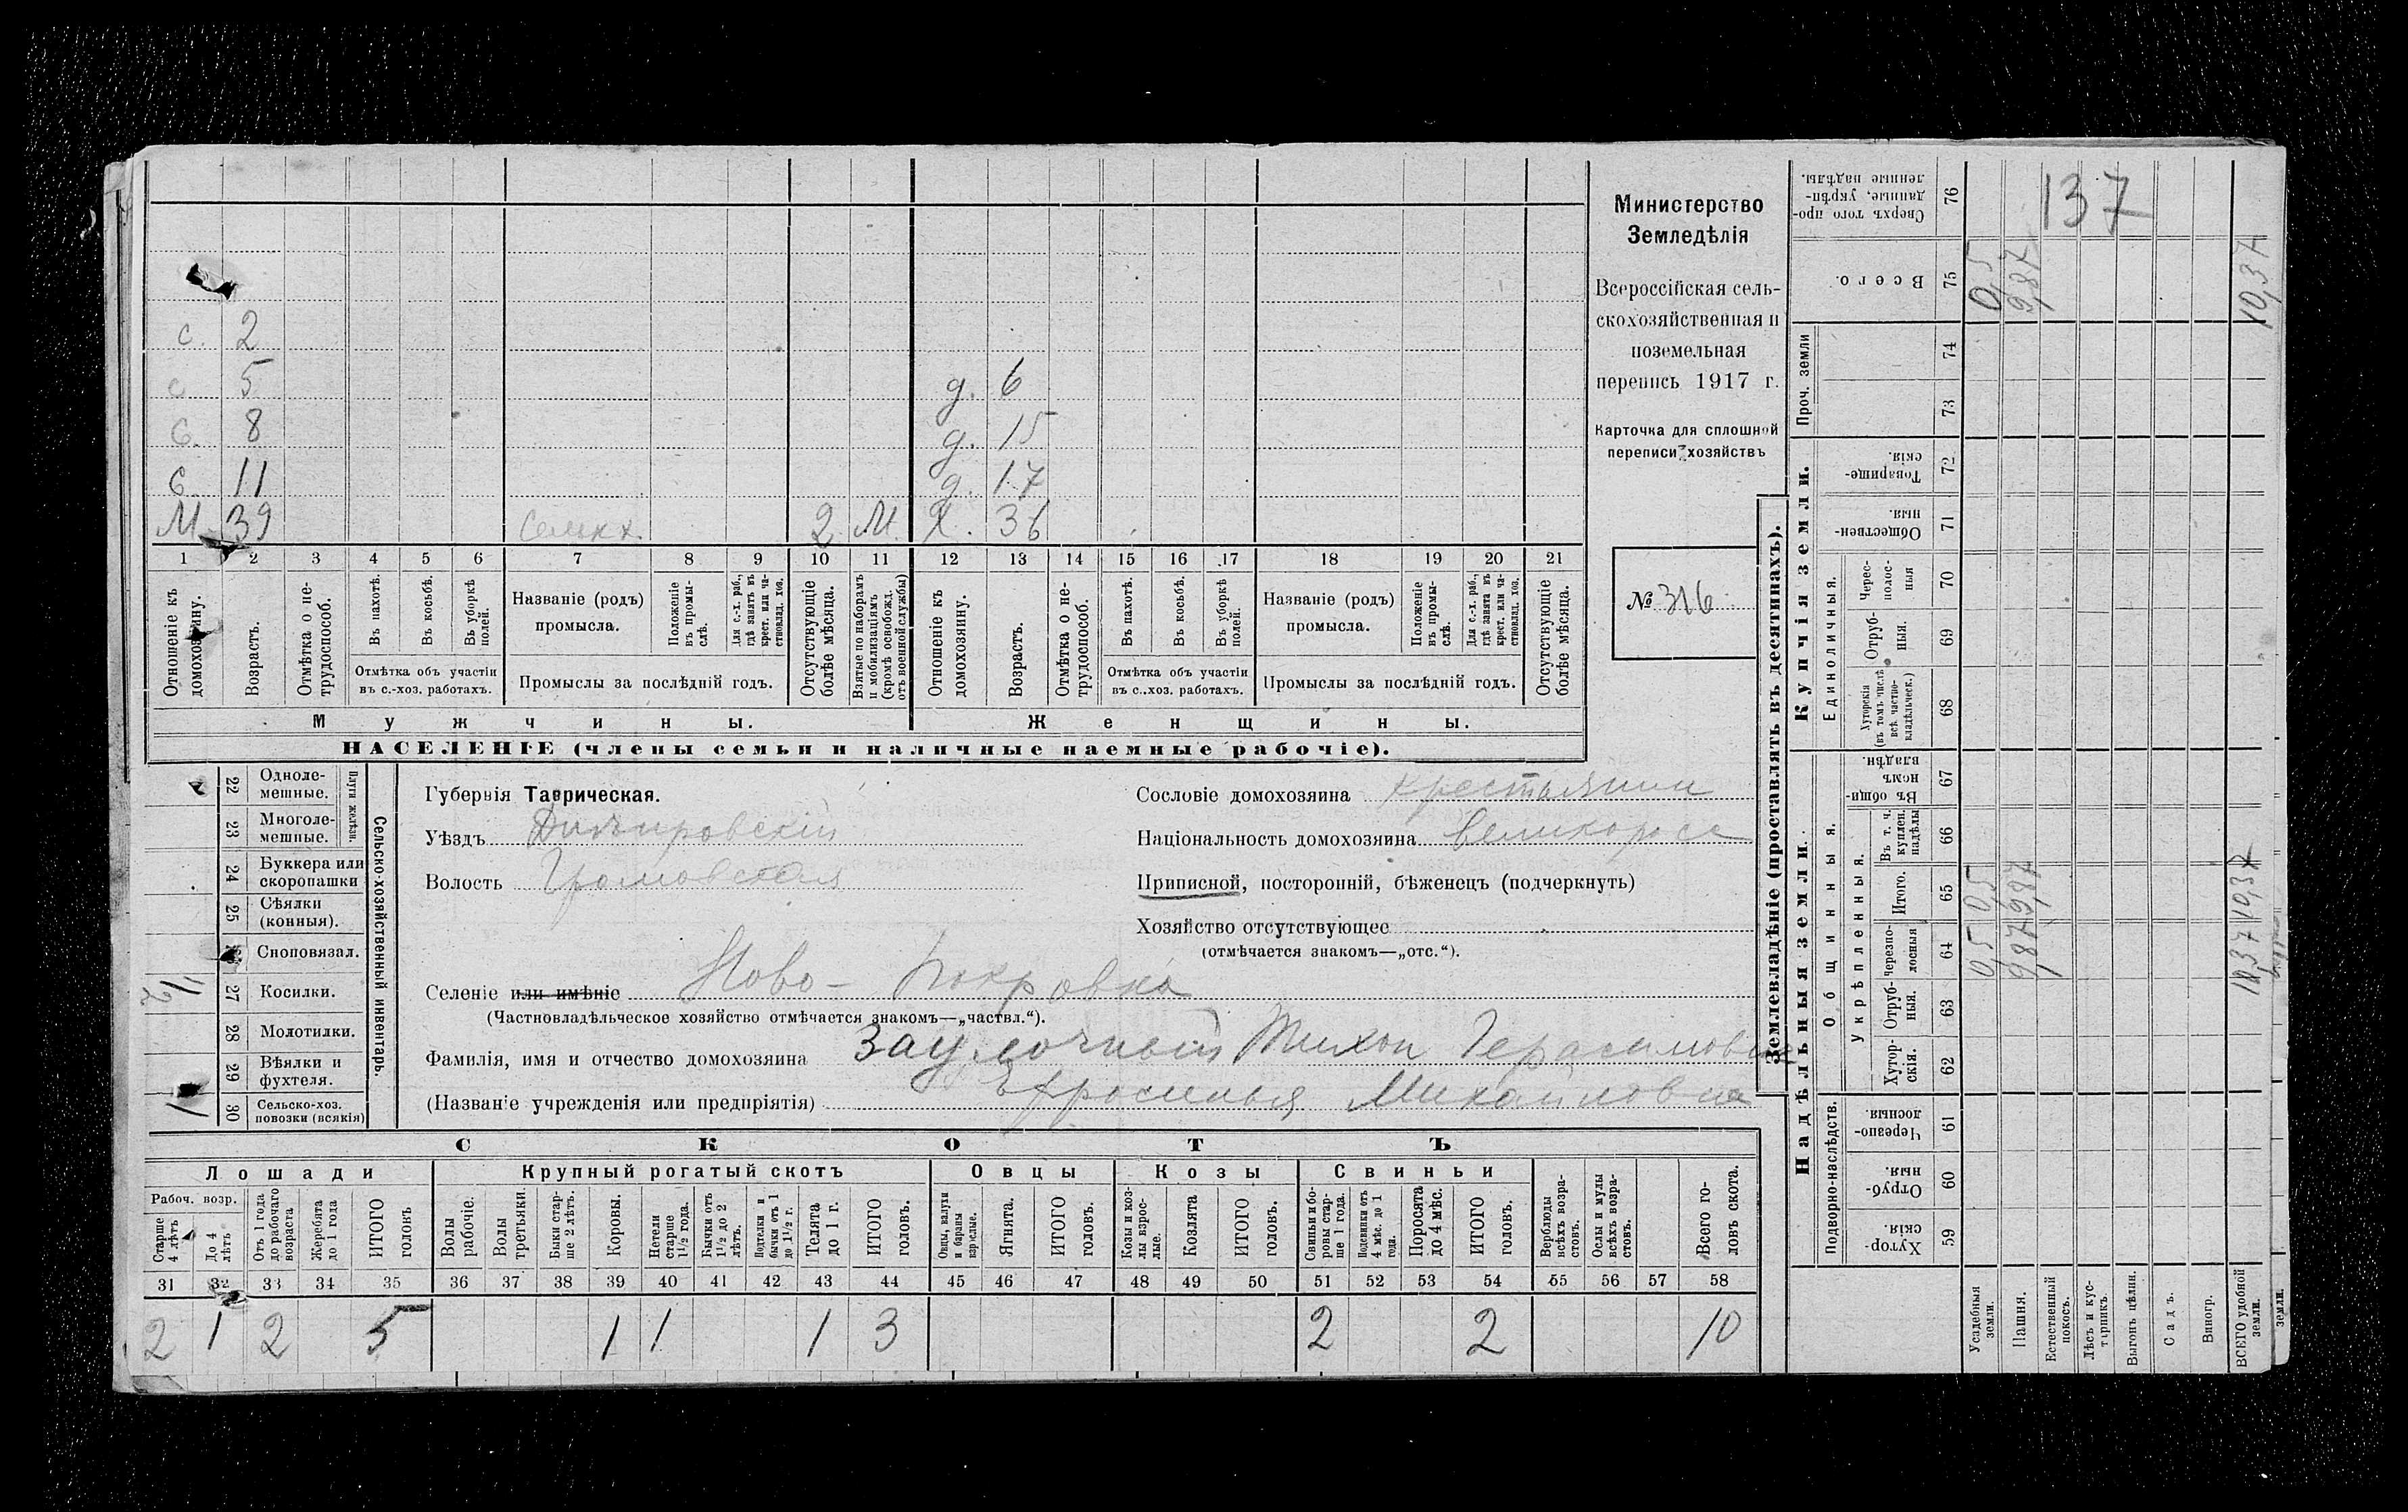 с. 2
с 5 д. 6
с. 8 д. 15
с. 11 д. 17
М 39 2 М. Х. 36
1 2 3 4 5 6 7 8 9 10 11 12 13 14 15 16 17 18 19 20 21
Отношеніе къ домохозяину.
Возрастъ.
Отмѣтка о нетрудоспособ.
Въ пахотѣ.
Въ косьбѣ.
Въ уборкѣ полей.
Отмѣтка объ участіи
въ с.-хоз. работахъ.
Названіе (родъ)
промысла.
Положеніе въ промыслѣ.
Для с.-х. раб., гдѣ занятъ въ крест. или частновлад. хоз.
Промыслы за послѣдній годъ.
Отсутствующіе болѣе мѣсяца.
Взятые по наборамъ и мобилизаціямъ (кромѣ освобожд. отъ военной службы)
Отношеніе къ домохозяину.
Возрастъ.
Отмѣтка о нетрудоспособ.
Въ пахотѣ.
Въ косьбѣ.
Въ уборкѣ полей.
Отмѣтка объ участіи
въ с.-хоз. работахъ.
Названіе (родъ)
промысла.
Положеніе въ промыслѣ.
Для с.-х. раб., гдѣ занята въ крест. или частновлад. хоз.
Промыслы за послѣдній годъ.
Отсутствующіе болѣе мѣсяца.
Мужчины.
Женщины.
НАСЕЛЕНІЕ (члены семьи и наличные наемные рабочіе).
Министерство
Земледѣлія
Всероссійская сель-
скохозяйственная и
поземельная
перепись 1917 г.
Карточка для сплошной
переписи хозяйствъ
№ 316
22 Одноле-
мешные.
23 Многоле-
мешные.
Плуги желѣзн.
24 Буккера или
скоропашки
25 Сѣялки
(конныя).
Сноповязал.
27 Косилки.
28 Молотилки.
29 Вѣялки и
фухтеля.
30 Сельско-хоз.
повозки (всякія)
1
Сельско-хозяйственный инвентарь.
Губернія Таврическая.
Уѣздъ Днѣпровскій
Волость Громовская
Селеніе или имѣніе Ново-Покровка
(Частновладѣльческое хозяйство отмѣчается знакомъ—„частвл.“).
Фамилія, имя и отчество домохозяина Тихон Герасимович
(Названіе учрежденія или предпріятія) Ефросинья Михайловна
Сословіе домохозяина крестьянин
Національность домохозяина великоросс
Приписной, посторонній, бѣженецъ (подчеркнуть)
Хозяйство отсутствующее
(отмѣчается знакомъ—„отс.“).
СКОТЪ
Лошади
Крупный рогатый скотъ
Овцы
Козы
Свиньи
Рабоч. возр.
Старше 4 лѣтъ
До 4 лѣтъ
Отъ 1 года до рабочаго возраста
Жеребята до 1 года
ИТОГО головъ
Волы рабочіе.
Волы третьяки.
Быки старше 2 лѣтъ.
Коровы.
Нетели старше 1½ года.
Бычки отъ 1½ до 2 лѣтъ.
Подтелки и бычки отъ 1 до 1½ г.
Телята до 1 г.
ИТОГО головъ.
Овцы, валухи и бараны взрослые.
Ягнята.
ИТОГО головъ.
Козы и козлы взрослые.
Козлята
ИТОГО головъ.
Свиньи и боровы старше 1 года.
Подсвинки отъ 4 мѣс. до 1 года.
Поросята до 4 мѣс.
ИТОГО головъ.
Верблюды всѣхъ возрастовъ.
Ослы и мулы всѣхъ возрастовъ.
Всего головъ скота.
31 32 33 34 35 36 37 38 39 40 41 42 43 44 45 46 47 48 49 50 51 52 53 54 55 56 57 58
2 1 2 5 1 1 1 3 2 2 10
Землевладѣніе (проставлять въ десятинахъ).
Купчія земли.
Надѣльныя земли.
Сверхъ того проданные, укрѣпленные надѣлы. 76
137
Всего. 75
0,5
9,87
10,37
Проч. земли
74
73
Товарищескія. 72
Общественныя 71
Единоличныя.
Черес-полосныя 70
Отрубныя. 69
Хуторскія (въ томъ числѣ всѣ частновладѣльческ.) 68
Общинныя.
Въ общинномъ владѣн. 67
Укрѣпленныя.
Въ т. ч. куплен. надѣлы 66
Итого. 65
0,5
9,87
10,37
черезполосныя 64
0,5
9,87
10,37
Отрубныя. 63
Хуторскія. 62
Подворно-наслѣдств.
Черезполосныя. 61
Отрубныя. 60
Хуторскія. 59
Усадебныя земли.
Пашня.
Естественный покосъ.
Лѣсъ и кустарникъ.
Выгонъ цѣлин.
Садъ.
Виногр.
ВСЕГО удобной земли.
земли.